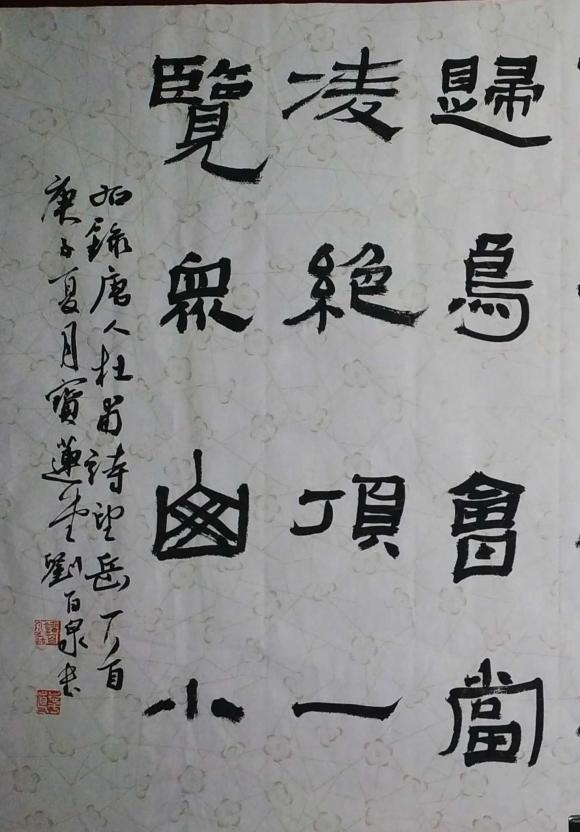 歸鳥會當
凌絕頂一
覽衆山小
錄唐人杜甫詩望岳
庚子夏月寶蓮堂劉百泉书